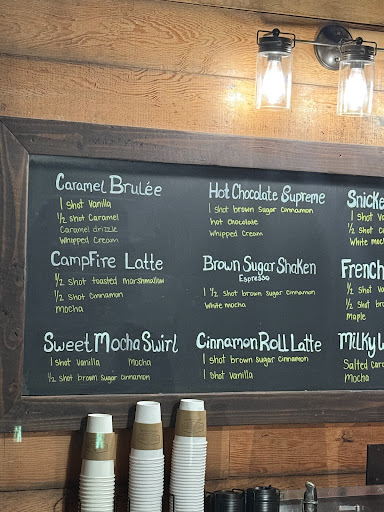 Caramel Brulée
1 shot Vanilla
½ shot Caramel
Caramel drizzle
Whipped Cream
CampFire Latte
½ shot toasted marshmallow
½ shot Cinnamon
mocha
Sweet Mocha Swirl
1 shot Vanilla Mocha
½ shot brown Sugar Cinnamon
Hot Chocolate Supreme
1 shot brown Sugar Cinnamon
hot chocolate
Whipped Cream
Brown Sugar Shaken
Espresso
1 ½ shot brown Sugar Cinnamon
White mocha
Cinnamon Roll Latte
1 shot brown Sugar Cinnamon
1 shot Vanilla
Snicke
1 shot
½ shot
White mo
French
½ shot
½ shot br
Maple
Milky W
Salted Car
Mocha